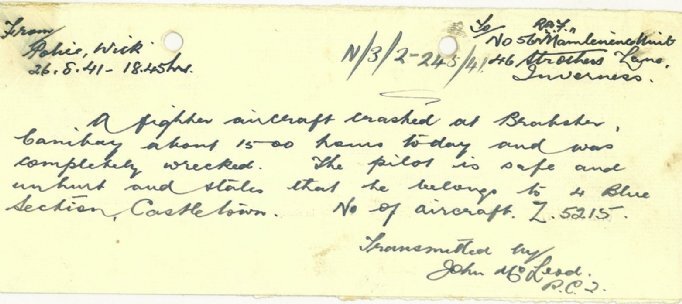 From
Police, Wick
26.8.41 - 18.45hrs.
N/3/2-245/41
To R.A.F.
No 56 Maintenance Unit
46 Strothers Lane,
Inverness.
A fighter aircraft crashed at Brabster,
Canisbay about 1500 hours today and was
completely wrecked. The pilot is safe and
unhurt and states that he belongs to 4 Blue
Section, Castletown. No of aircraft. Z.5215.
Transmitted by
John McLeod.
P.C.2.